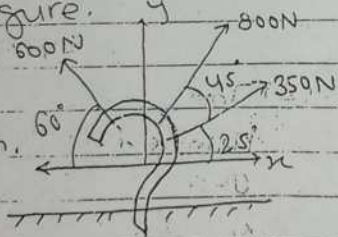 gure.
y
600N
800N
45°
350N
60°
25°
n.
x